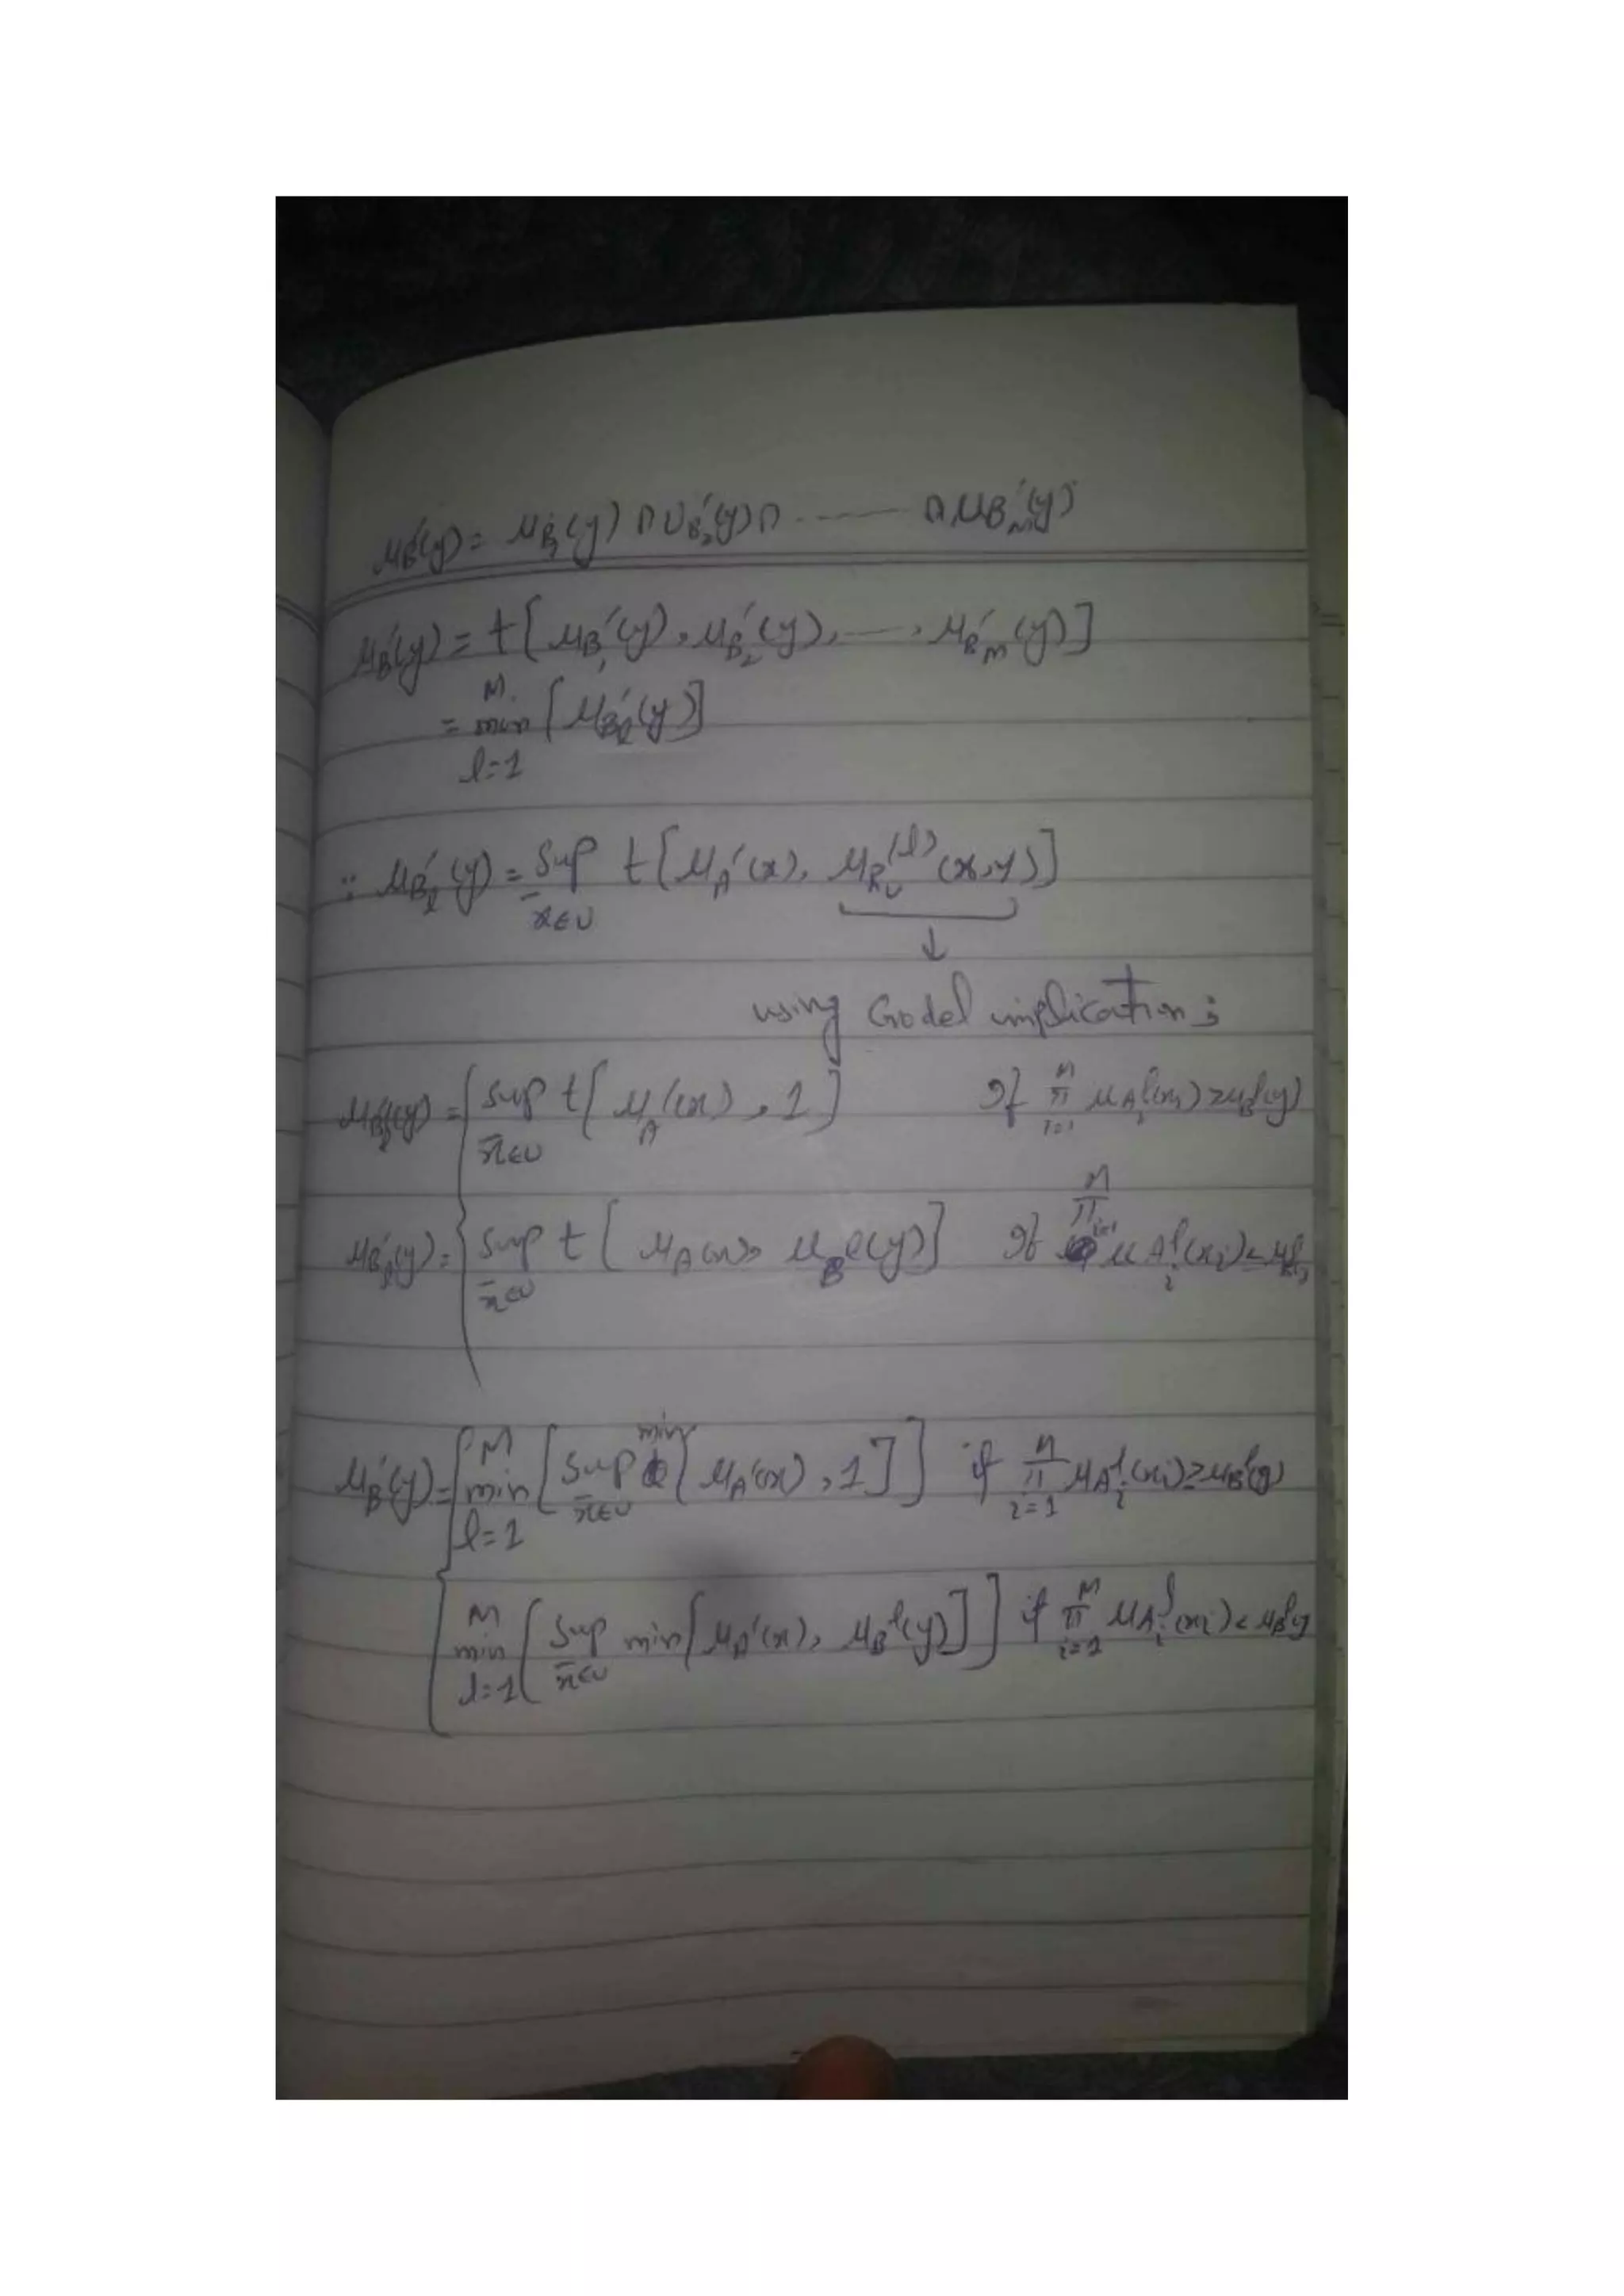 μB'(y) = μB₁'(y) ∩ UB₂'(y) ∩ ------ ∩ μB'ₘ(y)
μB'(y) = t[μB₁'(y), μB₂'(y), ---, μB'ₘ(y)]
= min_{l=1}^{M} [μB'ₗ(y)]
∵ μB'ₗ(y) = Sup_{x̄∈U} t[μA'(x), μRᵤ^(l)(x,y)]
↓
using Godel implication ;
μB'ₗ(y) = { Sup_{x̄∈U} t[μA'(x), 1] If π_{i=1}^{n} μAᵢˡ(xᵢ) ≥ μBˡ(y)
μB'ₗ(y) = { Sup_{x̄∈U} t[μA(x), μBˡ(y)] If π_{i=1}^{n} μAᵢˡ(xᵢ) <
μB'(y) = { min_{l=1}^{M} [Sup_{x̄∈U} min[μA'(x), 1]] if π_{i=1}^{n} μAᵢˡ(xᵢ) ≥ μBˡ(y)
{ min_{l=1}^{M} [Sup_{x̄∈U} min[μA'(x), μBˡ(y)]] if π_{i=1}^{n} μAᵢˡ(xᵢ) < μBˡy